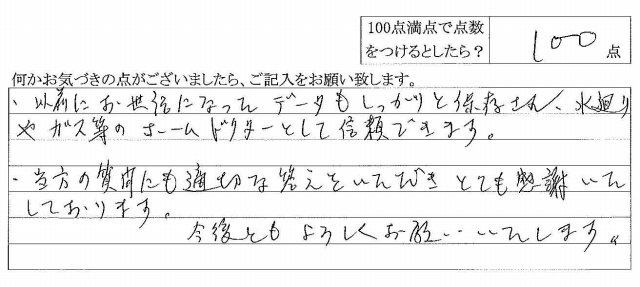 100点満点で点数
をつけるとしたら？
100点
何かお気づきの点がございましたら、ご記入をお願い致します。
・以前にお世話になったデータもしっかりと保存され、水廻り
やガス等のホームドクターとして信頼できます。
・当方の質問にも適切な答えをいただき とても感謝いた
しております。
今後ともよろしくお願いいたします。